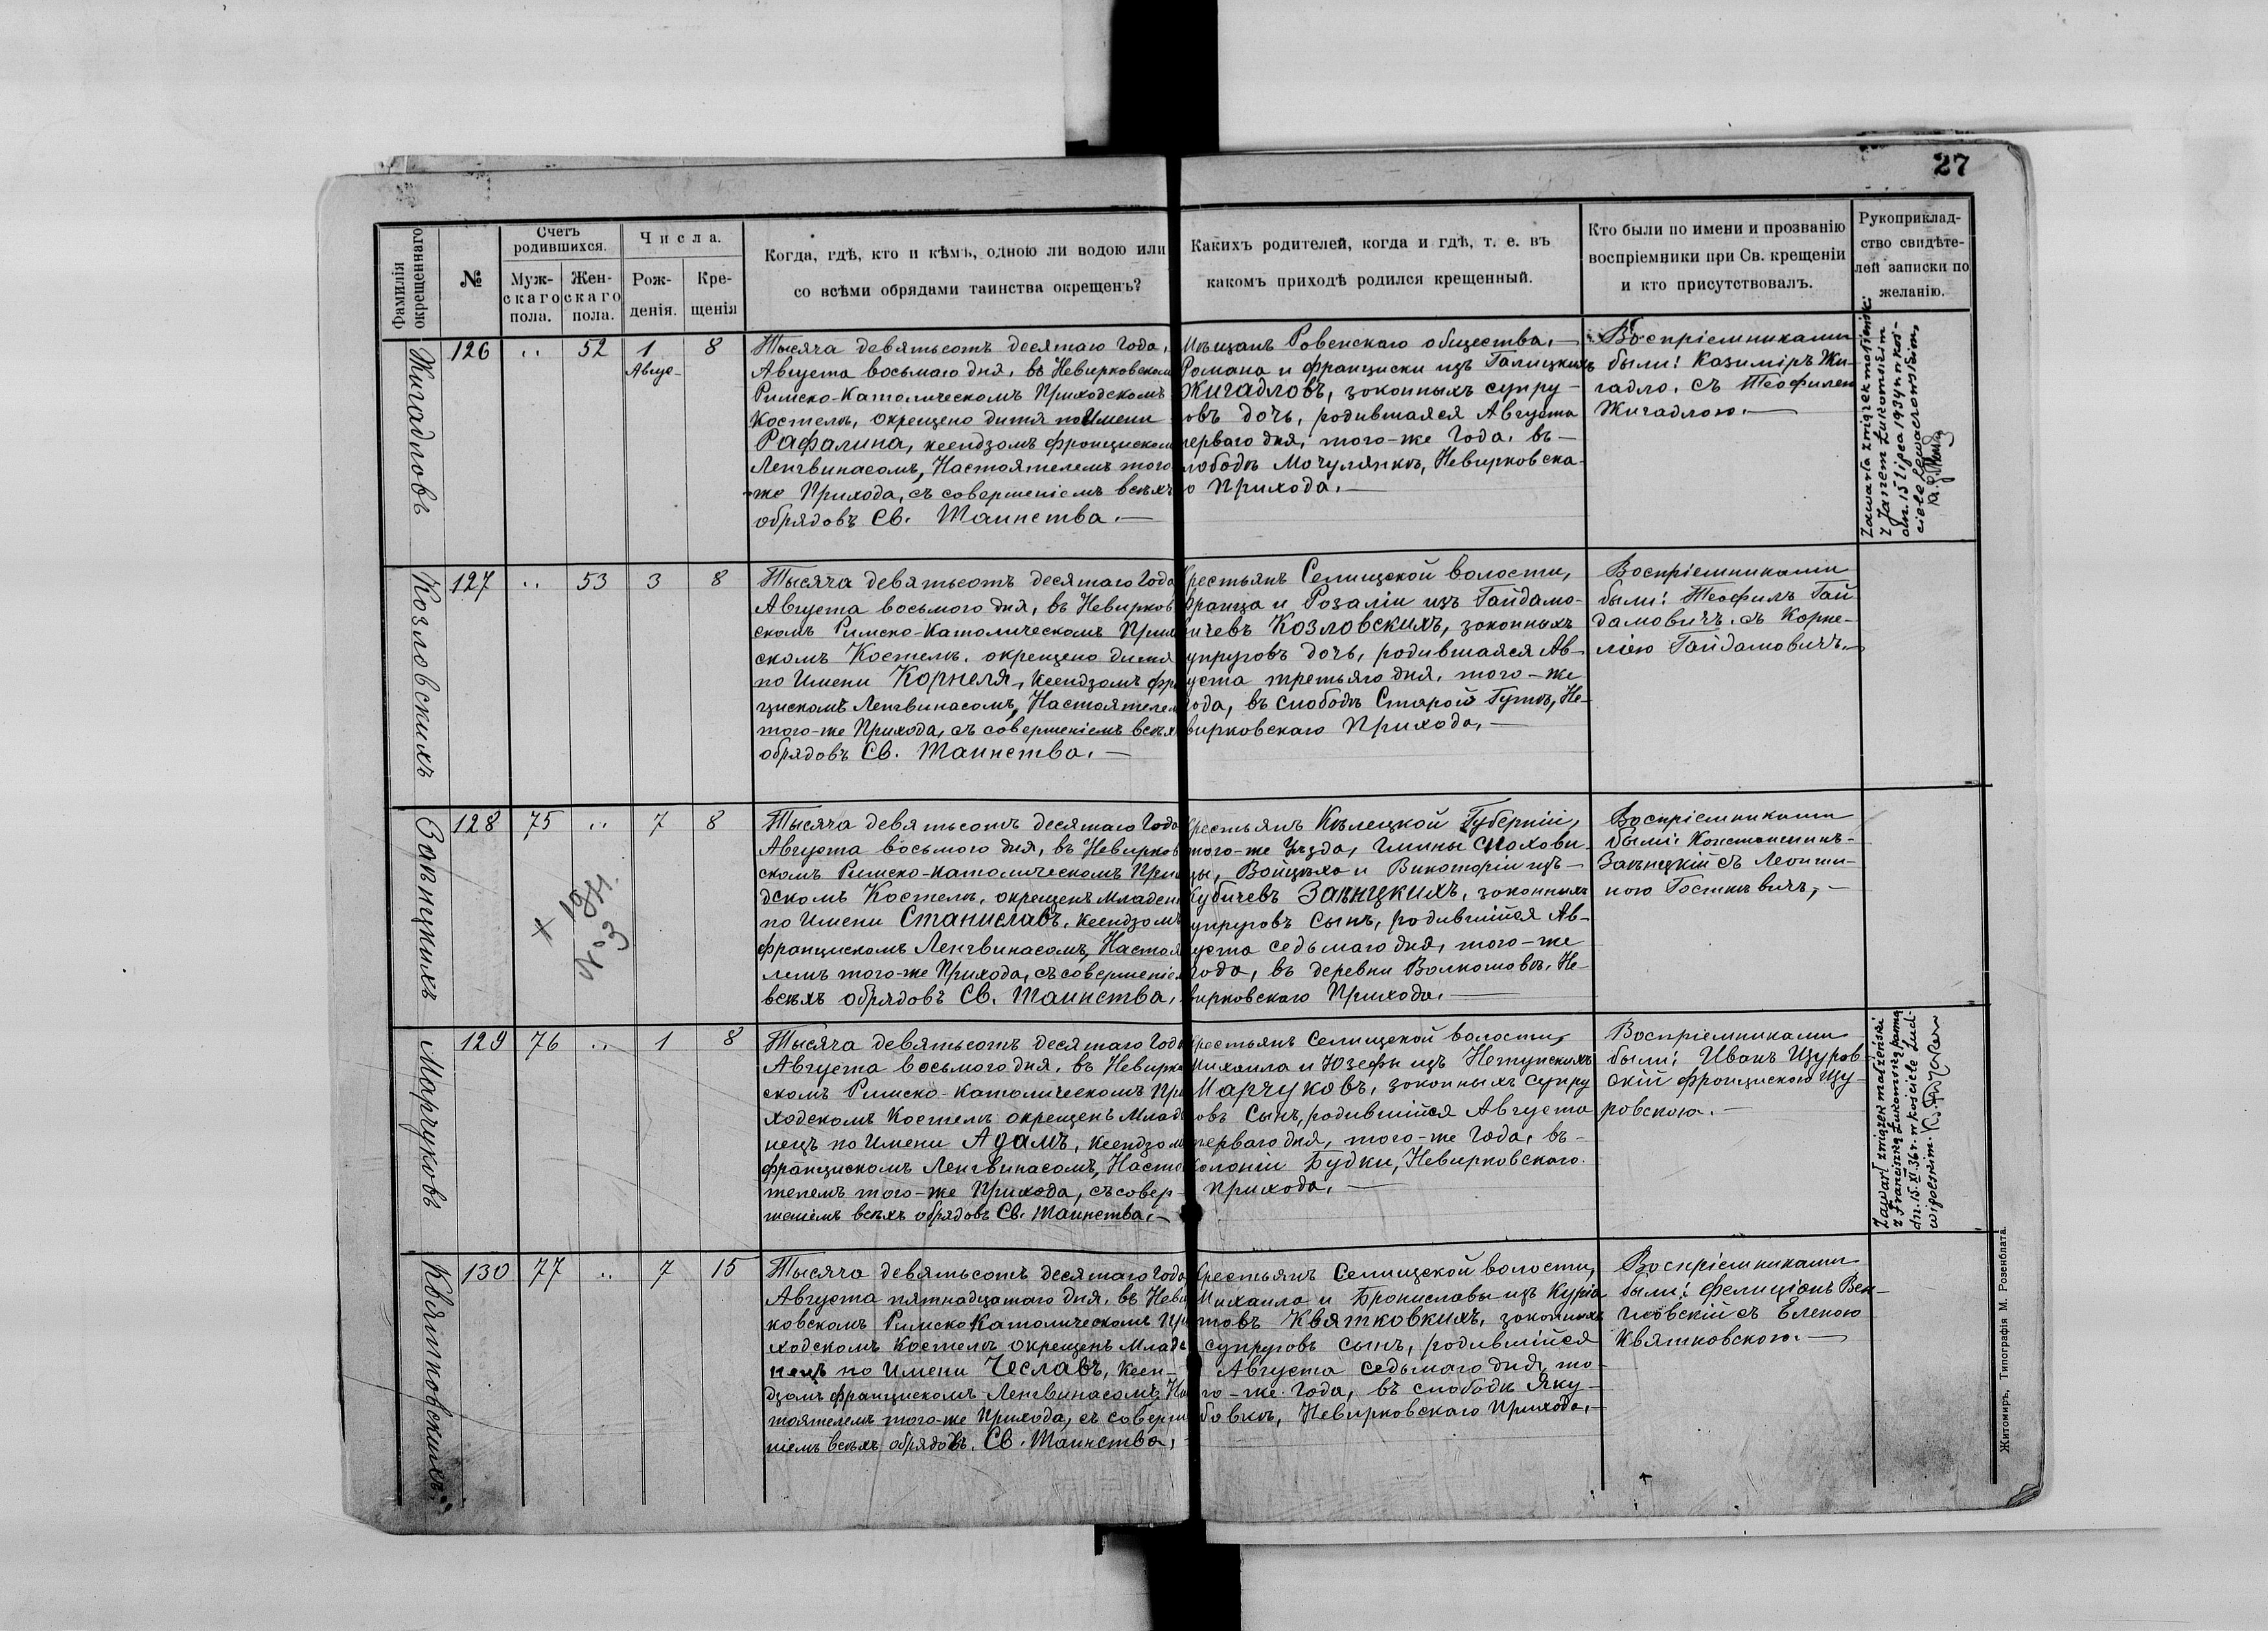 27
Фамилія окрещеннаго
№
Счетъ родившихся.
Муж-скаго пола.
Жен-скаго пола.
Числа.
Рож-денія.
Кре-щенія
Когда, гдѣ, кто и кѣмъ, одною ли водою или
со всѣми обрядами таинства окрещенъ?
Какихъ родителей, когда и гдѣ, т. е. въ
какомъ приходѣ родился крещенный.
Кто были по имени и прозванію
воспріемники при Св. крещеніи
и кто присутствовалъ.
Рукоприклад-
ство свидѣте-
лей записки по
желанію.
Жигадловъ
126 .. 52 1 8
Авгус-
Тысяча девятьсотъ десятаго Года,
Августа восьмаго дня, въ Невирковскомъ
Римско-Католическомъ Приходскомъ
Костелѣ, окрещено дитя по Имени
Рафалина, ксендзомъ Францискомъ
Ленгвинасомъ, Настоятелемъ того
-же Прихода, съ совершеніемъ всѣхъ
обрядовъ Св. Таинства.—
Мѣщанъ Ровенскаго общества,—
Романа и Франциски изъ Галицкихъ
Жигадловъ, законныхъ супру-
овъ дочь, родившаяся Августа
перваго дня, того-же Года, въ—
лободѣ Мочулянкѣ, Невирковска-
о Прихода.—
Воспріемниками
были: Казиміръ Жи-
гадло, съ Теофилею
Жигадлою.—
Zawarła związek małżeńsk:
z Janem Łukomskim
dn. 15 lipca 1934 r. w koś-
ciele
Козловскихъ
127 .. 53 3 8
Тысяча девятьсотъ десятаго Года
Августа восьмого дня, въ Невирков
скомъ Римско-Католическомъ Прих
скомъ Костелѣ, окрещено дитя
по Имени Корнеля, Ксендзомъ Фр
цискомъ Ленгвинасомъ, Настоятелем
того-же Прихода, съ совершеніемъ всѣхъ
обрядовъ Св. Таинства.—
Крестьянъ Селищской волости,
Франца и Розаліи изъ Гайдамо-
вичевъ Козловскихъ, законныхъ
супруговъ дочь, родившаяся Ав-
густа третьяго дня, того-же
Года, въ слободѣ Старой Гутѣ, Не-
вирковскаго Прихода,—
Воспріемниками
были: Теофилъ Гай
дамовичъ, съ Корне-
ліею Гайдамовичъ.—
Заѣнцкихъ
128 75 .. 7 8
+ 1911.
№ 3
Тысяча девятьсотъ десятаго Года
Августа восьмого дня, въ Невирков
скомъ Римско-Католическомъ Прих
дскомъ Костелѣ, окрещенъ Младен
по Имени Станиславъ, ксендзомъ
Францискомъ Ленгвинасомъ, Настоя
лемъ того-же Прихода, съ совершеніем
всѣхъ обрядовъ Св. Таинства.
Крестьянъ Кѣлецкой Губерніи,
того-же Уѣзда, Гмины Снохови
цы, Войцѣха и Викторіи изъ—
Кубичевъ Заѣнцкихъ, законныхъ
супруговъ Сынъ, родившійся Ав-
густа седьмаго дня, того-же
Года, въ деревни Волкошовѣ, Не-
вирковскаго Прихода.—
Воспріемниками
были: Константинъ-
Заѣнцкій съ Леонти-
ною Госткевичъ,—
Марчуковъ
129 76 .. 1 8
Тысяча девятьсотъ десятаго Года
Августа восьмого дня, въ Невирко
скомъ Римско-Католическомъ При
ходскомъ Костелѣ окрещенъ Млад
нецъ по Имени Адамъ, ксендзом
Францискомъ Ленгвинасомъ, Насто
телемъ того-же Прихода, съ совер-
шеніемъ всѣхъ обрядовъ Св. Таинства.—
Крестьянъ Селищской волости,
Михаила и Юзефы изъ
Марчуковъ, законныхъ супру
овъ Сынъ, родившійся Августа
перваго дня, того-же Года, въ-
Колоніи Будки, Невирковскаго
Прихода.—
Воспріемниками
были: Иванъ Щуров
скій Францискою Щу-
ровскою.—
Zawarł związek małżeński
z Franciszką Łukomską panną
dn. 15.XI.36 r. w kościele Lud-
wipolskim.
Квятковскихъ
130 77 .. 7 15
Тысяча девятьсотъ десятаго Года
Августа пятнадцатаго дня, въ Неви
ковскомъ Римско Католическомъ При
ходскомъ Костелѣ окрещенъ Младе
нецъ по Имени Чеславъ, Ксен-
дзомъ Францискомъ Ленгвинасомъ, На
тоятелемъ того-же Прихода, съ соверш
ніемъ всѣхъ обрядовъ. Св. Таинства,
Крестьянъ Селищской волости,
Михаила и Брониславы изъ Куріа
товъ Квятковкихъ, законныхъ
супруговъ сынъ, родившійся
Августа седьмаго дня, то-
го-же Года, въ слободѣ Яку-
бовкѣ, Невирковскаго Прихода,—
Воспріемниками
были: Фелиціанъ Вен-
гловскій съ Еленою
Квятковскою.—
Житомиръ, Типографія М. Розенблата.